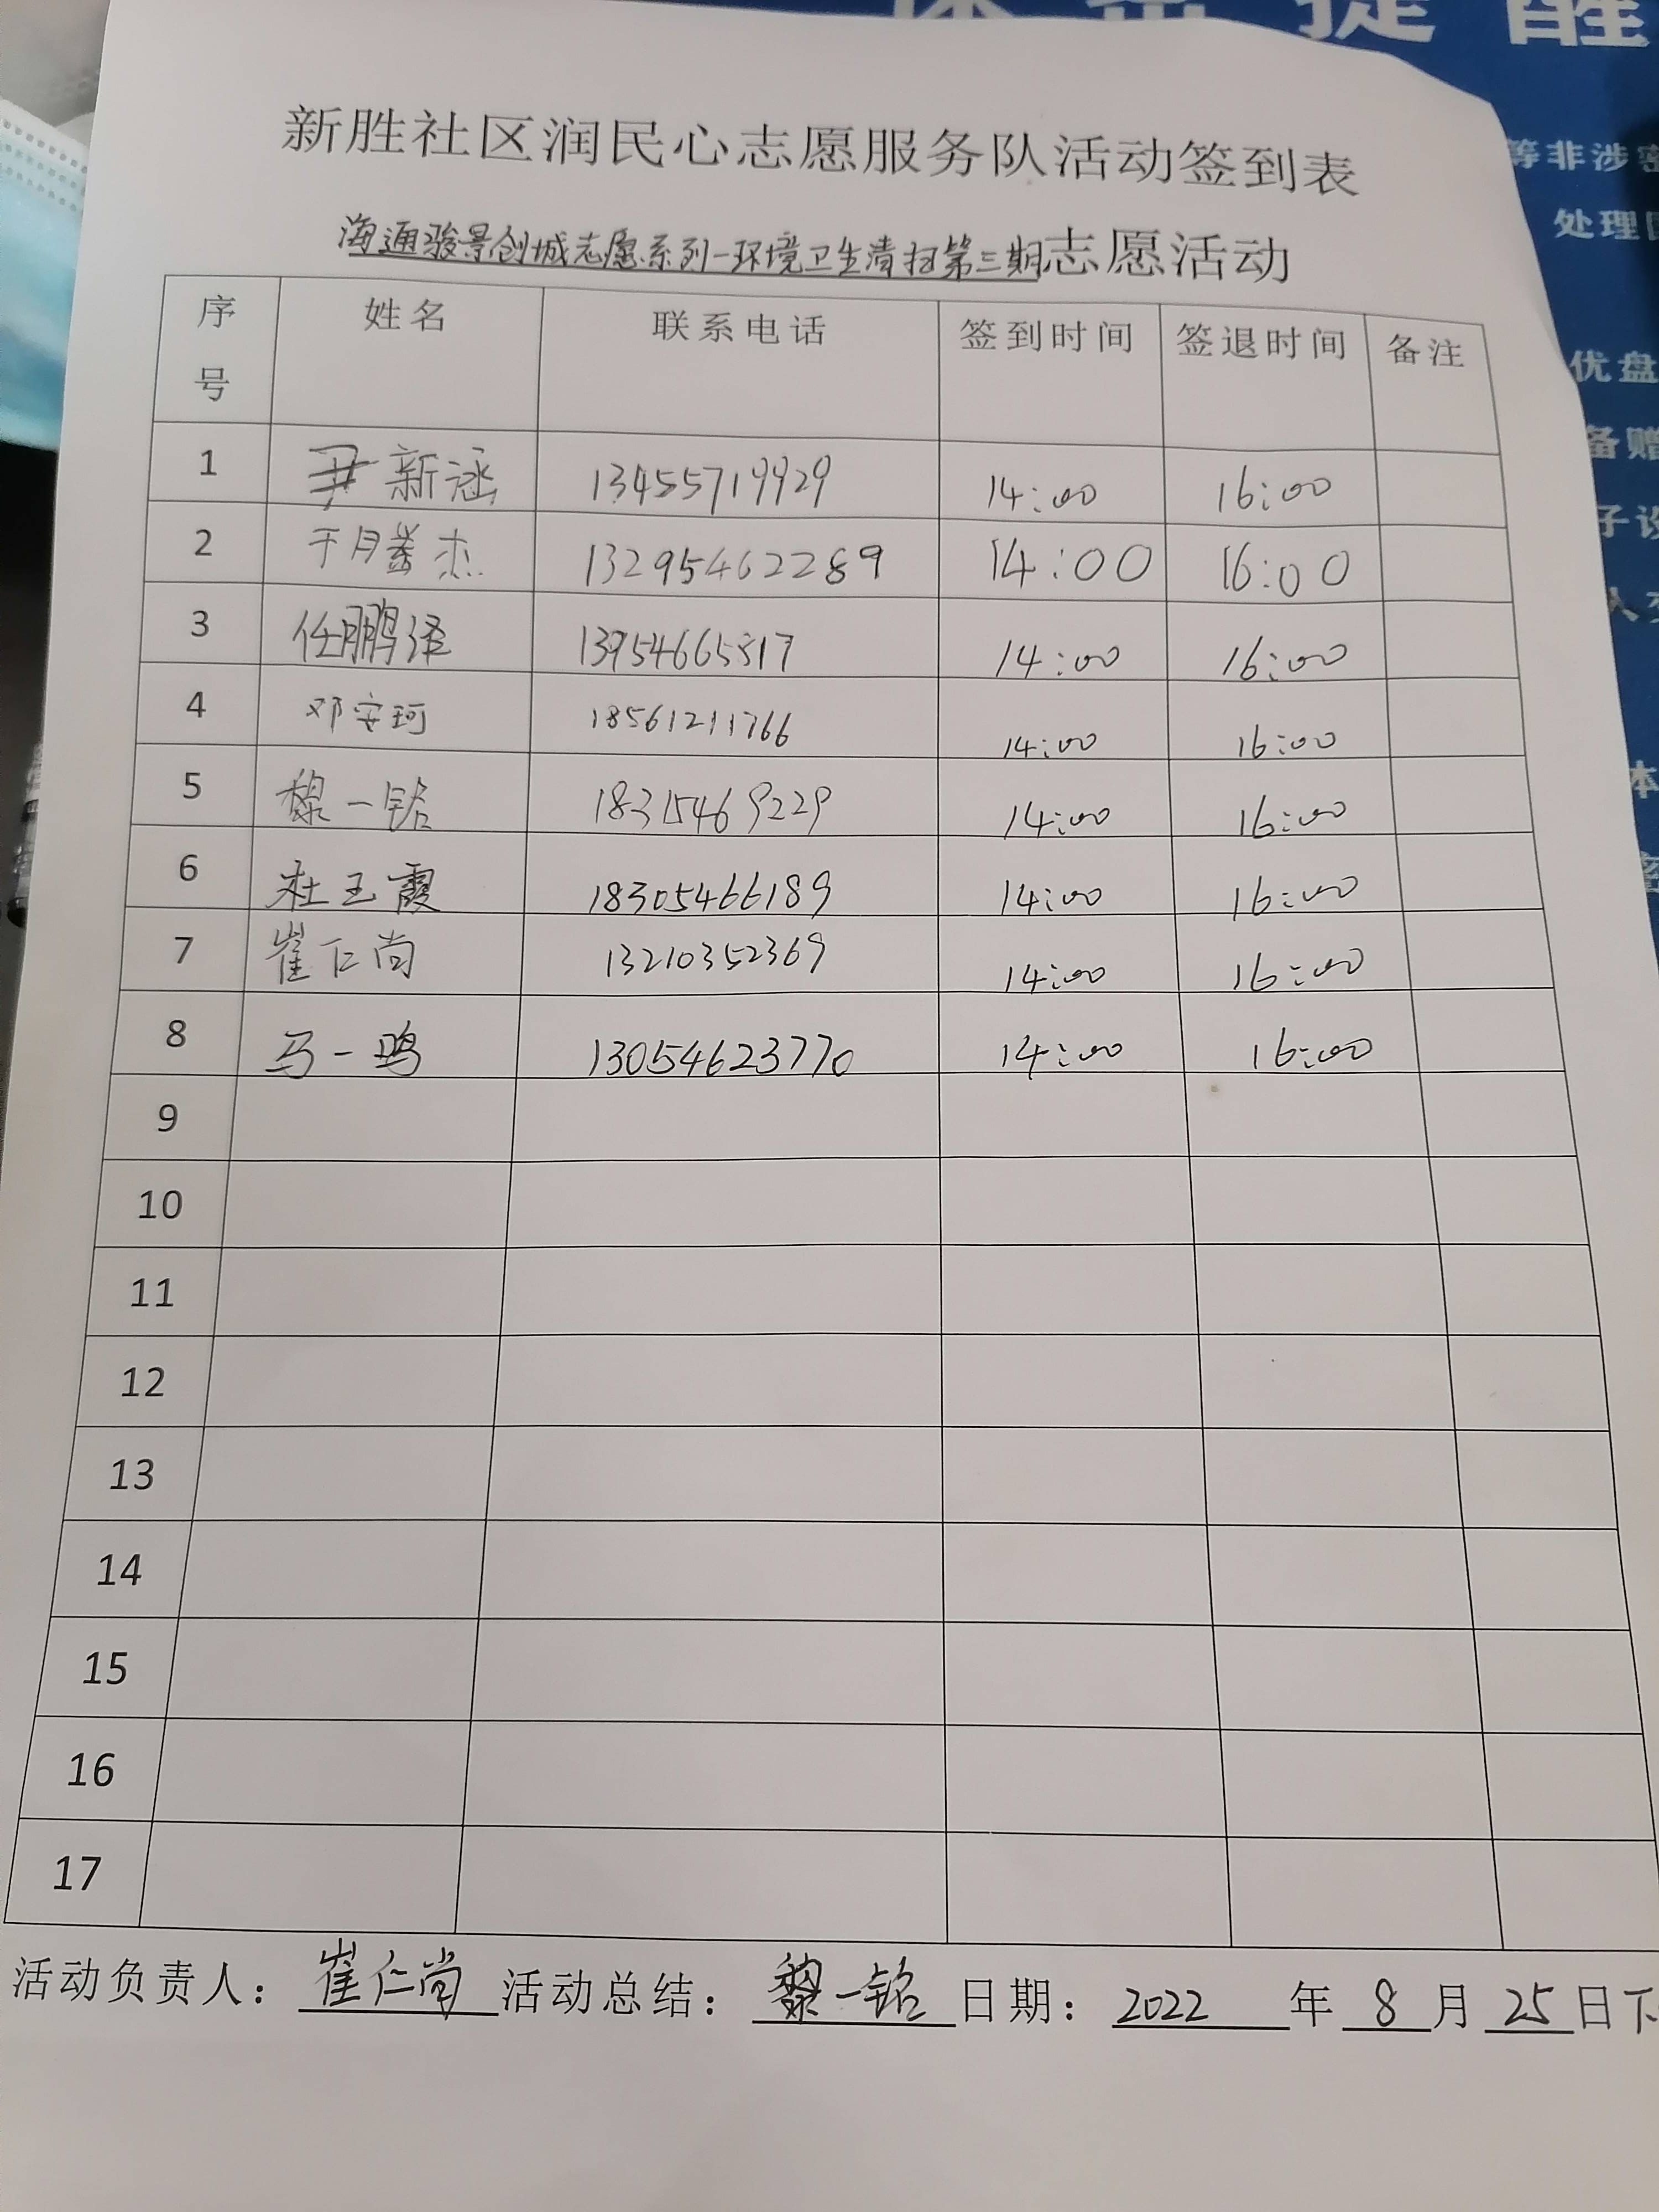 提醒
等非涉密
处理
优盘
备赠
子设
人
本
密
新胜社区润民心志愿服务队活动签到表
海通骏景创城志愿系列-环境卫生清扫第三期志愿活动
序号 姓名 联系电话 签到时间 签退时间 备注
1 尹新涵 13455719929 14:00 16:00
2 于月 杰 13295462289 14:00 16:00
3 任鹏泽 13954665517 14:00 16:00
4 邓安珂 18561211766 14:00 16:00
5 黎一铭 18315469229 14:00 16:00
6 杜玉霞 18305466189 14:00 16:00
7 崔仁尚 13210352369 14:00 16:00
8 马一鸣 13054623770 14:00 16:00
9
10
11
12
13
14
15
16
17
活动负责人：崔仁尚 活动总结：黎一铭 日期：2022 年 8 月 25 日下